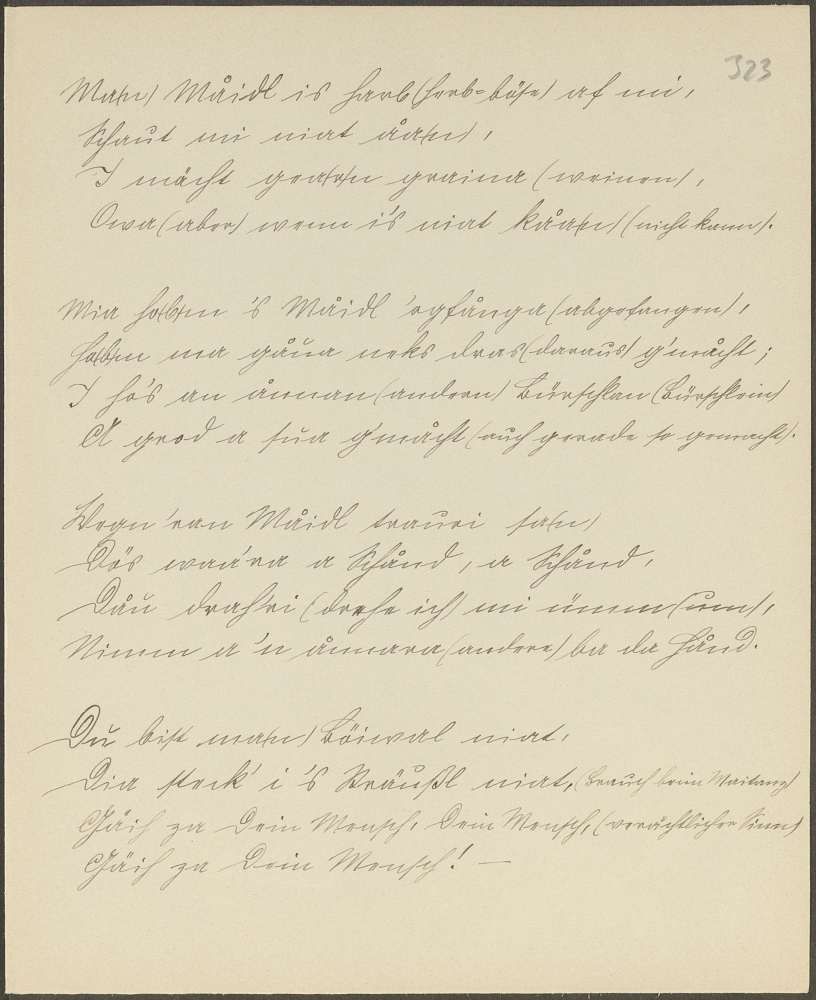 323
Ma(n) Måidl is harb (herb=böse) af mi,
Schaut mi niat åa(n),
I mächt gea(r)n graina (weinen),
Owa (aber) wenn i's niat kåa(n) (nicht kann).
Mia ho(b)m 's Måidl 'ogfånga (abgefangen),
Ho(b)m ma gåua neks dras (daraus) g'måcht;
I ho's an ånnan (andern) Bürschlan (Bürschlein)
A grod a sua g'måcht (auch gerade so gemacht).
Wegn 'ran Måidl trauri sa(n)
Dös waa'ra a Schånd, a Schånd,
Dåu drah'ri (drehe ich) mi ümm (um),
Nimm a 'n ånnara (andere) ba da Hånd.
Du bist ma(n) Böiwal niat,
Dia steck' i 's Sträußl niat, (Brauch beim Maitanz)
Gäih za Dein Mensch, Dein Mensch, (verächtlicher Sinn)
Gäih za Dein Mensch! —